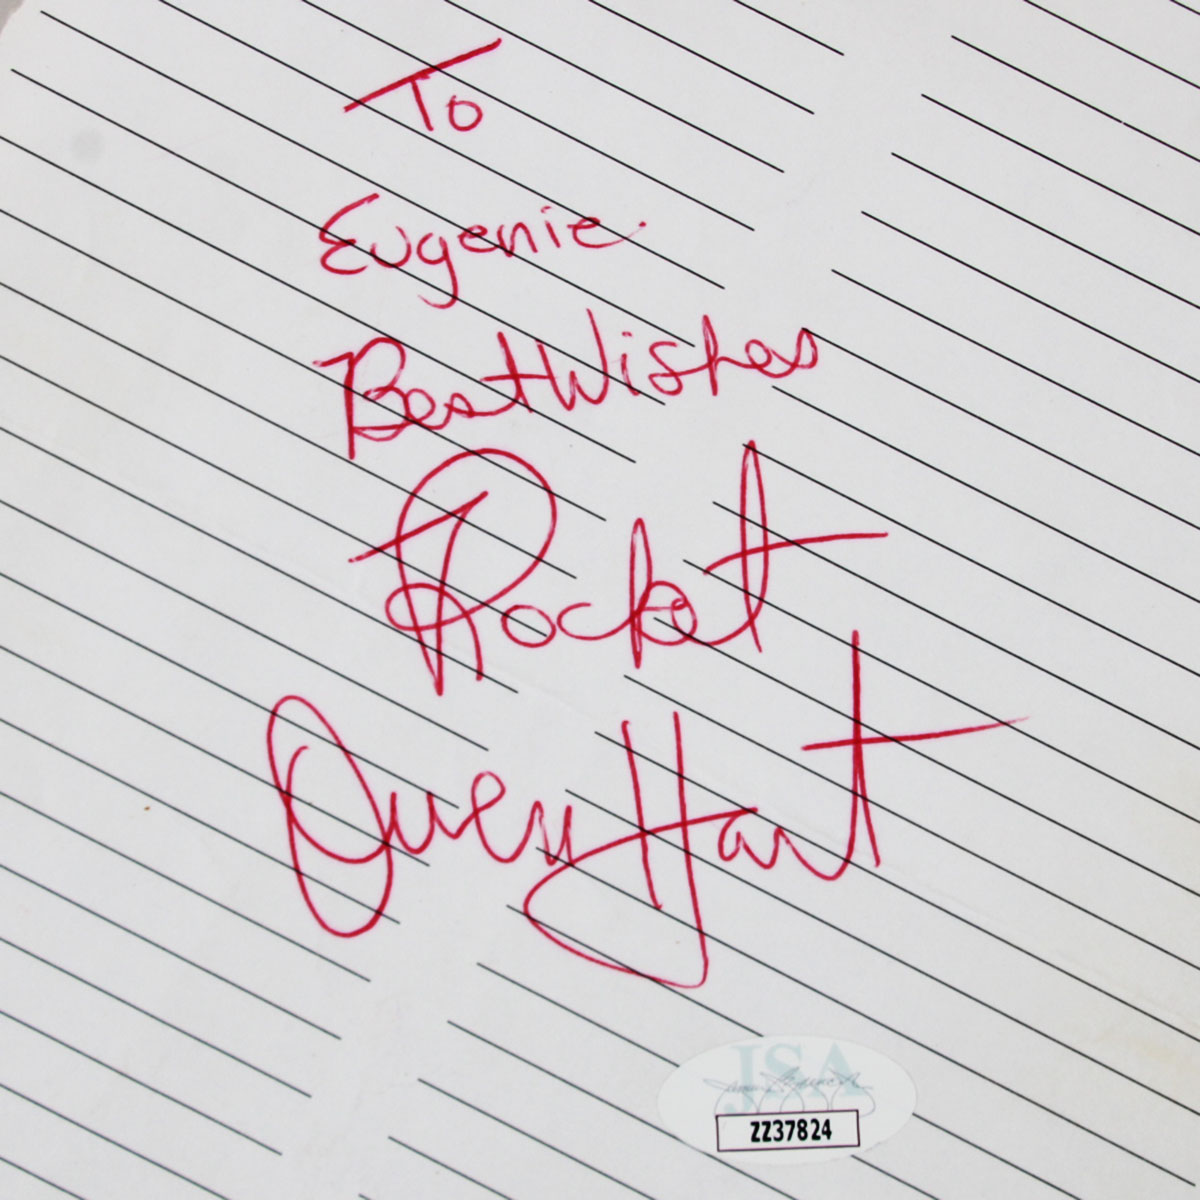 To
Eugenie
Best Wishes
Rocket
Owen Hart
JSA
ZZ37824